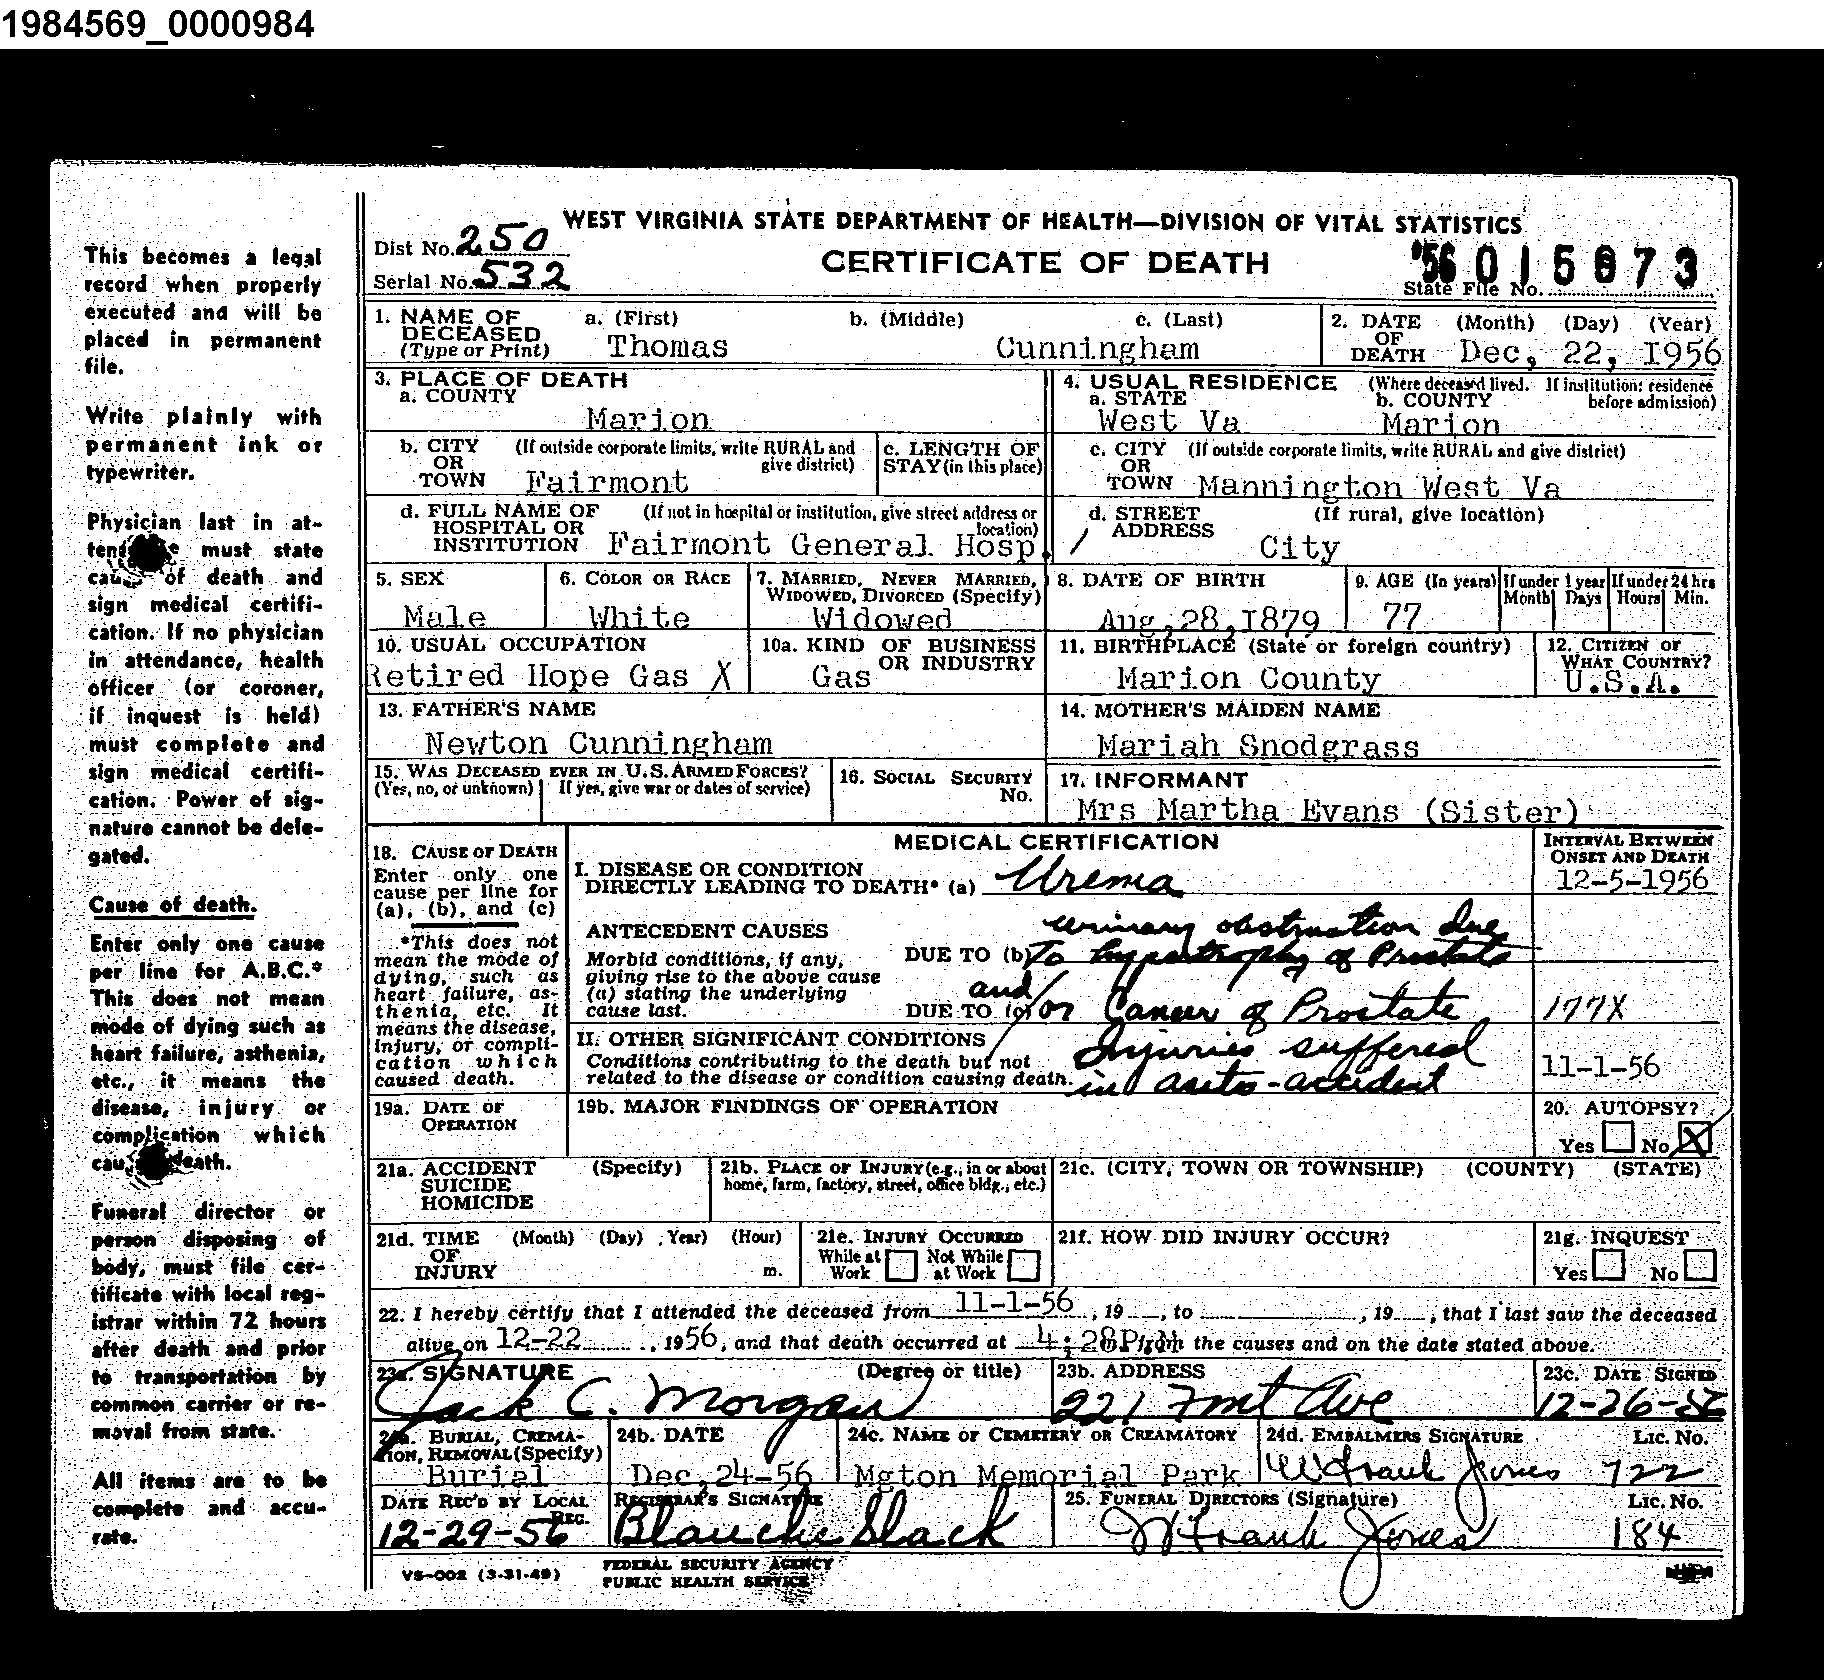 1984569_0000984
This becomes a legal
record when properly
executed and will be
placed in permanent
file.
Write plainly with
permanent ink or
typewriter.
Physician last in at-
must state
of death and
sign medical certifi-
cation. If no physician
in attendance, health
officer (or coroner,
if inquest is held)
must complete and
sign medical certifi-
cation. Power of sig-
nature cannot be dele-
gated.
Cause of death.
Enter only one cause
per line for A.B.C.*
This does not mean
mode of dying such as
heart failure, asthenia,
etc., it means the
disease, injury or
complication which
death.
Funeral director or
person disposing of
body, must file cer-
tificate with local reg-
istrar within 72 hours
after death and prior
to transportation by
common carrier or re-
moval from state.
All items are to be
complete and accu-
rate.
WEST VIRGINIA STATE DEPARTMENT OF HEALTH—DIVISION OF VITAL STATISTICS
Dist No. 250
Serial No. 532
CERTIFICATE OF DEATH
'56 015873
State File No.
1. NAME OF DECEASED (Type or Print) a. (First) b. (Middle) c. (Last)
Thomas Cunningham
2. DATE OF DEATH (Month) (Day) (Year)
Dec, 22, 1956
3. PLACE OF DEATH
a. COUNTY
Marion
4. USUAL RESIDENCE (Where deceased lived. If institution: residence before admission)
a. STATE b. COUNTY
West Va Marion
b. CITY OR TOWN (If outside corporate limits, write RURAL and give district)
Fairmont
c. LENGTH OF STAY (in this place)
c. CITY OR TOWN (If outside corporate limits, write RURAL and give district)
Mannington West Va
d. FULL NAME OF HOSPITAL OR INSTITUTION (If not in hospital or institution, give street address or location)
Fairmont General Hosp.
d. STREET ADDRESS (If rural, give location)
City
5. SEX
Male
6. COLOR OR RACE
White
7. MARRIED, NEVER MARRIED, WIDOWED, DIVORCED (Specify)
Widowed
8. DATE OF BIRTH
Aug, 28, 1879
9. AGE (In years) If under 1 year If under 24 hrs
Month Days Hours Min.
77
10. USUAL OCCUPATION
Retired Hope Gas X
10a. KIND OF BUSINESS OR INDUSTRY
Gas
11. BIRTHPLACE (State or foreign country)
Marion County
12. CITIZEN OF WHAT COUNTRY?
U.S.A.
13. FATHER'S NAME
Newton Cunningham
14. MOTHER'S MAIDEN NAME
Mariah Snodgrass
15. WAS DECEASED EVER IN U.S. ARMED FORCES?
(Yes, no, or unknown) If yes, give war or dates of service)
16. SOCIAL SECURITY No.
17. INFORMANT
Mrs Martha Evans (Sister)
18. CAUSE OF DEATH
Enter only one
cause per line for
(a), (b), and (c)
*This does not
mean the mode of
dying, such as
heart failure, as-
thenia, etc. It
means the disease,
injury, or compli-
cation which
caused death.
MEDICAL CERTIFICATION
INTERVAL BETWEEN ONSET AND DEATH
I. DISEASE OR CONDITION
DIRECTLY LEADING TO DEATH* (a) Uremia
12-5-1956
ANTECEDENT CAUSES
Morbid conditions, if any,
giving rise to the above cause
(a) stating the underlying
cause last.
urinary obstruction due
DUE TO (b) To hypertrophy of Prostate
and/
DUE TO (c) or Cancer of Prostate
177X
II. OTHER SIGNIFICANT CONDITIONS
Conditions contributing to the death but not
related to the disease or condition causing death.
Injuries suffered
in auto-accident
11-1-56
19a. DATE OF OPERATION
19b. MAJOR FINDINGS OF OPERATION
20. AUTOPSY?
Yes No X
21a. ACCIDENT SUICIDE HOMICIDE (Specify)
21b. PLACE OF INJURY (e.g., in or about home, farm, factory, street, office bldg., etc.)
21c. (CITY, TOWN OR TOWNSHIP) (COUNTY) (STATE)
21d. TIME OF INJURY (Month) (Day) (Year) (Hour) m.
21e. INJURY OCCURRED
While at Work Not While at Work
21f. HOW DID INJURY OCCUR?
21g. INQUEST
Yes No
22. I hereby certify that I attended the deceased from 11-1-56, 19 , to , 19 , that I last saw the deceased
alive on 12-22, 1956, and that death occurred at 4:28P m., from the causes and on the date stated above.
23a. SIGNATURE (Degree or title)
Jack C. Morgan
23b. ADDRESS
221 Fmt Ave
23c. DATE SIGNED
12-26-56
24a. BURIAL, CREMATION, REMOVAL (Specify)
Burial
24b. DATE
Dec, 24-56
24c. NAME OF CEMETERY OR CREAMATORY
Mgton Memorial Park
24d. EMBALMERS SIGNATURE Lic. No.
W Frank Jones 722
DATE REC'D BY LOCAL REG.
12-29-56
REGISTRAR'S SIGNATURE
Blanche Slack
25. FUNERAL DIRECTORS (Signature) Lic. No.
W Frank Jones 184
VS-002 (3-31-49)
FEDERAL SECURITY AGENCY
PUBLIC HEALTH SERVICE